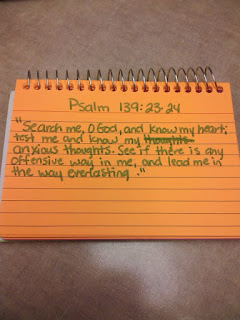 Psalm 139:23-24
"Search me, O God, and know my heart;
test me and know my thoughts
anxious thoughts. See if there is any
offensive way in me, and lead me in
the way everlasting."